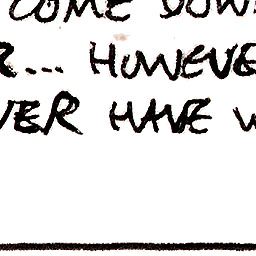 COME DOW
R... HOWEVE
VER HAVE W